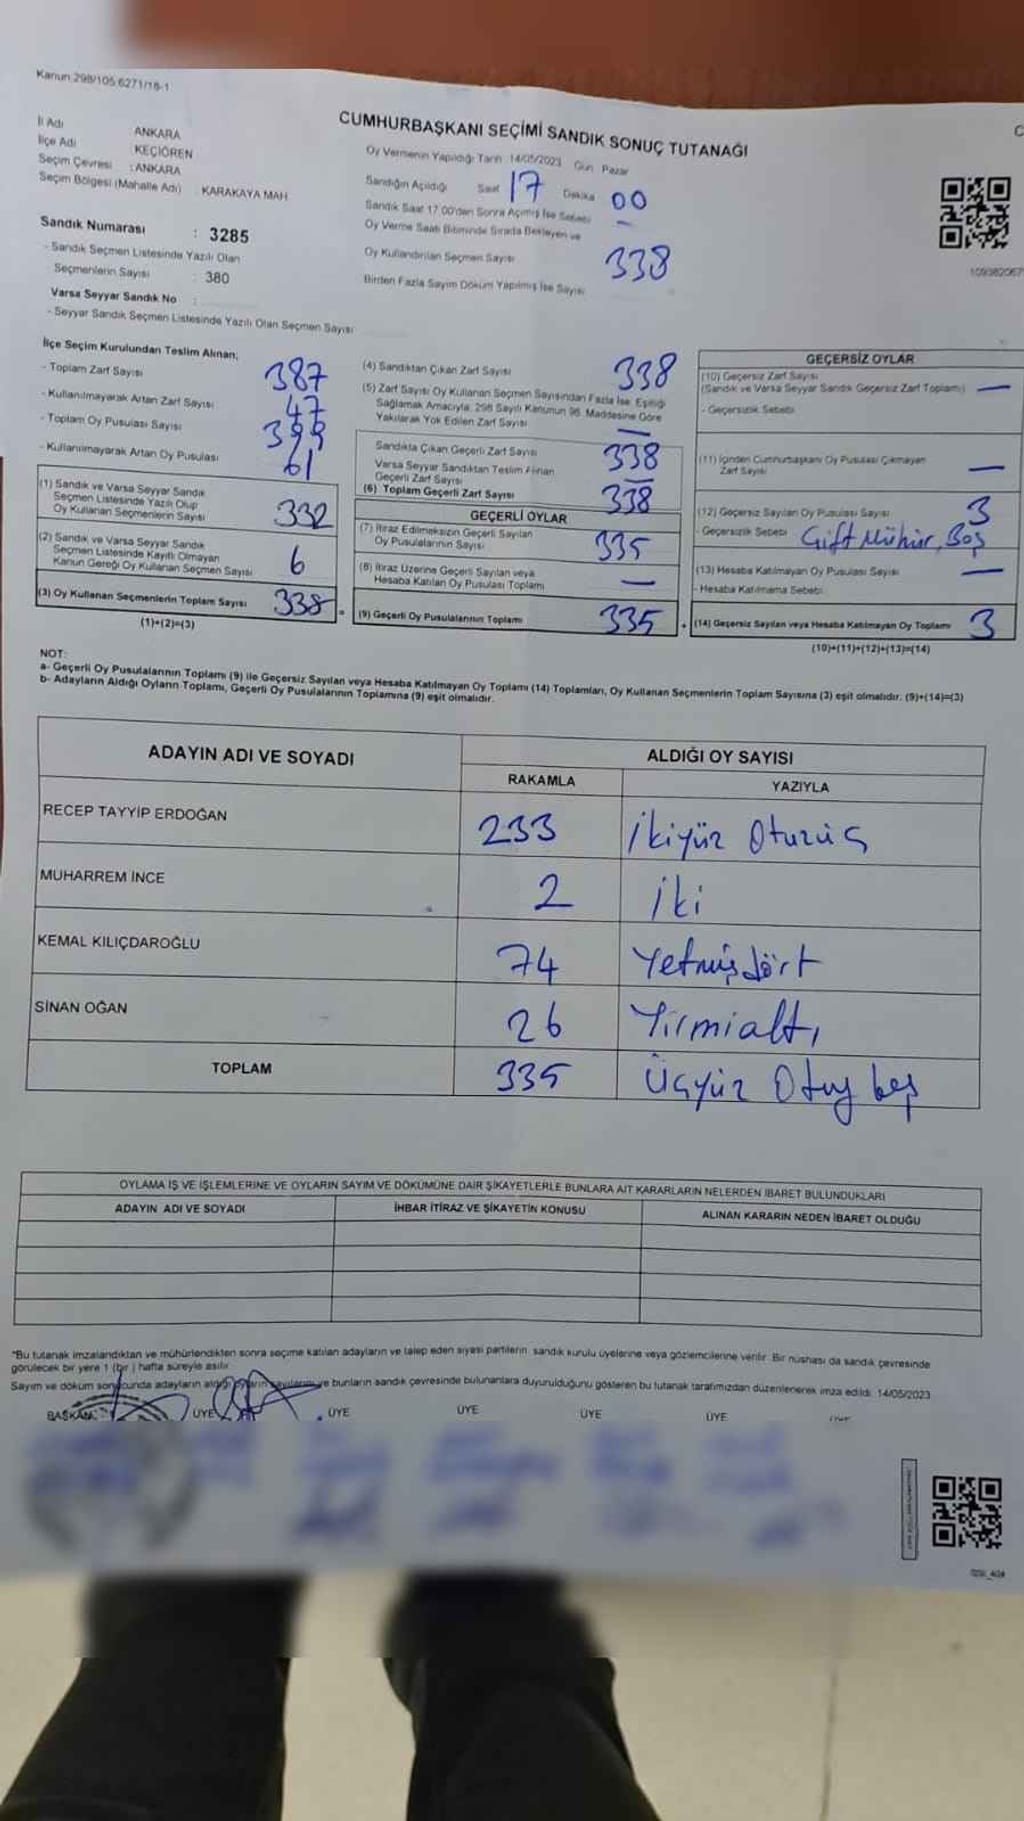 Kanun 298/105 6271/18-1
CUMHURBAŞKANI SEÇİMİ SANDIK SONUÇ TUTANAĞI
İl Adı ANKARA
İlçe Adı KEÇİÖREN
Seçim Çevresi : ANKARA
Seçim Bölgesi (Mahalle Adı) KARAKAYA MAH
Sandık Numarası : 3285
- Sandık Seçmen Listesinde Yazılı Olan
Seçmenlerin Sayısı : 380
Varsa Seyyar Sandık No :
- Seyyar Sandık Seçmen Listesinde Yazılı Olan Seçmen Sayısı
Oy Vermenin Yapıldığı Tarih 14/05/2023 Gün Pazar
Sandığın Açıldığı Saat 17 Dakika 00
Sandık Saat 17.00'den Sonra Açılmış İse Sebebi —
Oy Verme Saati Bitiminde Sırada Bekleyen ve
Oy Kullandırılan Seçmen Sayısı 338
Birden Fazla Sayım Döküm Yapılmış İse Sayısı
İlçe Seçim Kurulundan Teslim Alınan;
- Toplam Zarf Sayısı 387
- Kullanılmayarak Artan Zarf Sayısı 47
- Toplam Oy Pusulası Sayısı
- Kullanılmayarak Artan Oy Pusulası 61
(1) Sandık ve Varsa Seyyar Sandık
Seçmen Listesinde Yazılı Olup
Oy Kullanan Seçmenlerin Sayısı 332
(2) Sandık ve Varsa Seyyar Sandık
Seçmen Listesinde Kayıtlı Olmayan
Kanun Gereği Oy Kullanan Seçmen Sayısı 6
(3) Oy Kullanan Seçmenlerin Toplam Sayısı 338
(1)+(2)=(3)
(4) Sandıktan Çıkan Zarf Sayısı 338
(5) Zarf Sayısı Oy Kullanan Seçmen Sayısından Fazla İse, Eşitliği
Sağlamak Amacıyla, 298 Sayılı Kanunun 98. Maddesine Göre
Yakılarak Yok Edilen Zarf Sayısı —
Sandıkta Çıkan Geçerli Zarf Sayısı 338
Varsa Seyyar Sandıktan Teslim Alınan
Geçerli Zarf Sayısı —
(6) Toplam Geçerli Zarf Sayısı 338
GEÇERLİ OYLAR
(7) İtiraz Edilmeksizin Geçerli Sayılan
Oy Pusulalarının Sayısı 335
(8) İtiraz Üzerine Geçerli Sayılan veya
Hesaba Katılan Oy Pusulası Toplamı —
= (9) Geçerli Oy Pusulalarının Toplamı 335
GEÇERSİZ OYLAR
(10) Geçersiz Zarf Sayısı
(Sandık ve Varsa Seyyar Sandık Geçersiz Zarf Toplamı) —
- Geçersizlik Sebebi
(11) İçinden Cumhurbaşkanı Oy Pusulası Çıkmayan
Zarf Sayısı —
(12) Geçersiz Sayılan Oy Pusulası Sayısı 3
- Geçersizlik Sebebi Çift Mühür, Boş
(13) Hesaba Katılmayan Oy Pusulası Sayısı —
- Hesaba Katılmama Sebebi
+ (14) Geçersiz Sayılan veya Hesaba Katılmayan Oy Toplamı 3
(10)+(11)+(12)+(13)=(14)
NOT:
a- Geçerli Oy Pusulalarının Toplamı (9) ile Geçersiz Sayılan veya Hesaba Katılmayan Oy Toplamı (14) Toplamları, Oy Kullanan Seçmenlerin Toplam Sayısına (3) eşit olmalıdır. (9)+(14)=(3)
b- Adayların Aldığı Oyların Toplamı, Geçerli Oy Pusulalarının Toplamına (9) eşit olmalıdır.
ADAYIN ADI VE SOYADI ALDIĞI OY SAYISI
RAKAMLA YAZIYLA
RECEP TAYYİP ERDOĞAN 233 İkiyüz Otuzüç
MUHARREM İNCE 2 İki
KEMAL KILIÇDAROĞLU 74 Yetmişdört
SİNAN OĞAN 26 Yirmialtı
TOPLAM 335 Üçyüz Otuz beş
OYLAMA İŞ VE İŞLEMLERİNE VE OYLARIN SAYIM VE DÖKÜMÜNE DAİR ŞİKAYETLERLE BUNLARA AİT KARARLARIN NELERDEN İBARET BULUNDUKLARI
ADAYIN ADI VE SOYADI İHBAR İTİRAZ VE ŞİKAYETİN KONUSU ALINAN KARARIN NEDEN İBARET OLDUĞU
*Bu tutanak imzalandıktan ve mühürlendikten sonra seçime katılan adayların ve talep eden siyasi partilerin sandık kurulu üyelerine veya gözlemcilerine verilir. Bir nüshası da sandık çevresinde
görülecek bir yere 1 (bir) hafta süreyle asılır.
Sayım ve döküm sonucunda adayların aldığı oyların sayılarını ve bunların sandık çevresinde bulunanlara duyurulduğunu gösteren bu tutanak tarafımızdan düzenlenerek imza edildi. 14/05/2023
BAŞKAN ÜYE ÜYE ÜYE ÜYE ÜYE